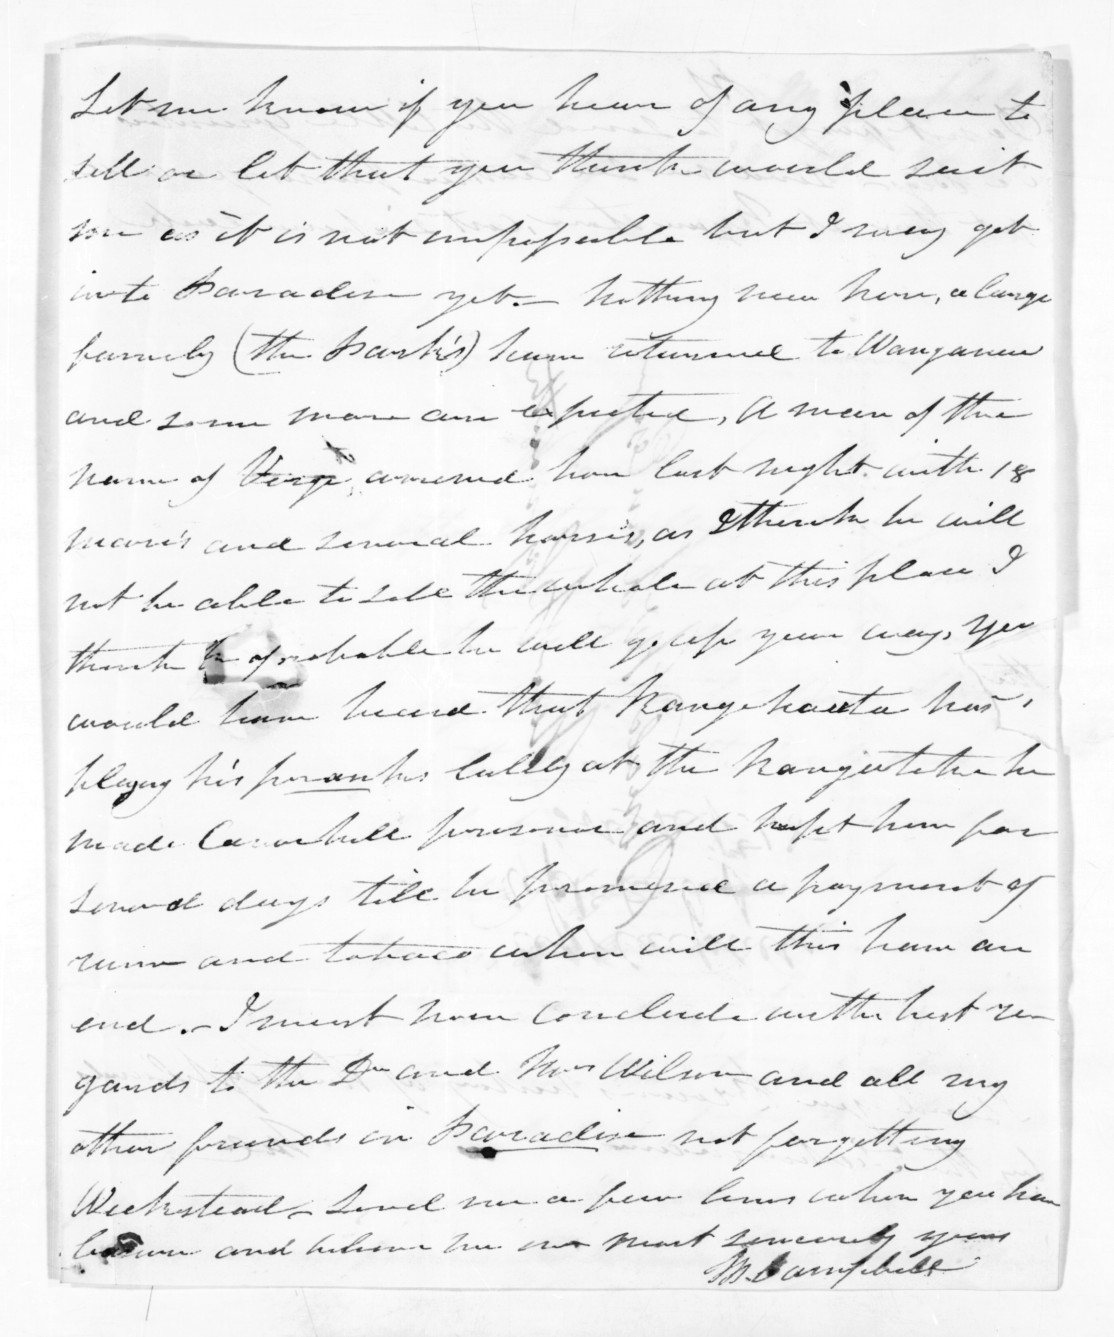 Let me know if you hear of any place to
sell or let that you think would suit
me as it is not impossible but I may get
into Paradise yet. - Nothing new here, a large
family (the Park's) have returned to Wanganui
and some more are expected, A man of the
name of arrived here last night with 18
mares and several horses, as I think he will
not be able to sell the whole at this place I
think probable he will go up your way, You
would have heard that Rangihaeata has
playing his pranks lately at the Rangitikei he
made prisoner and kept him for
several days till he promised a payment of
rum and tobaco when will this have an
end. - I must now conclude with best re-
gards to the Dr and Mrs Wilson and all my
other friends in Paradise not forgetting
Weekstead - Send me a few lines when you have
leisure and believe me most sincerely yours
M Campbell